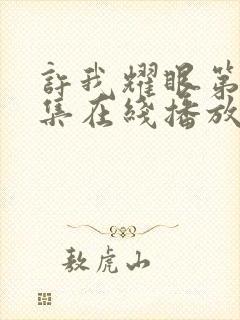 許我耀眼第
集在綫播放
敖虎山